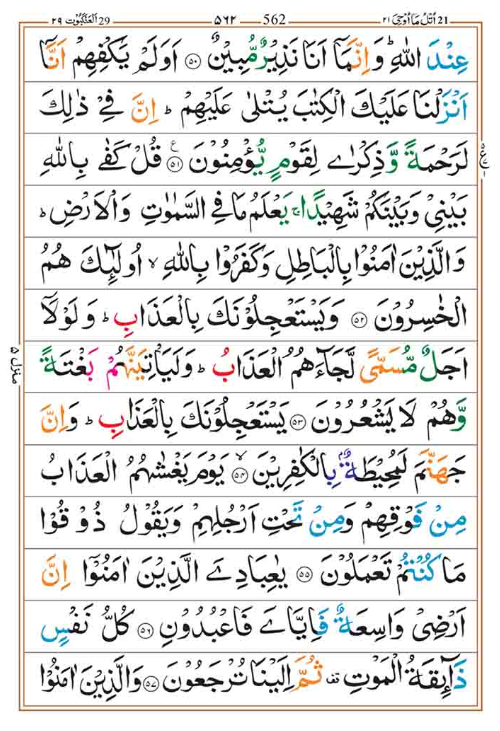 اُتْلُ مَاۤ اُوْحِیَ ٢١ 21 562 ٥٦٢ اَلْعَنْكَبُوْت ٢٩ 29
عِنْدَ اللّٰهِ ؕ وَاِنَّمَاۤ اَنَا نَذِيْرٌ مُّبِيْنٌ ٥٠ اَوَلَمْ يَكْفِهِمْ اَنَّاۤ
اَنْزَلْنَا عَلَيْكَ الْكِتٰبَ يُتْلٰى عَلَيْهِمْ ؕ اِنَّ فِيْ ذٰلِكَ
لَرَحْمَةً وَّذِكْرٰى لِقَوْمٍ يُّؤْمِنُوْنَ ٥١ ع قُلْ كَفٰى بِاللّٰهِ
بَيْنِيْ وَبَيْنَكُمْ شَهِيْدًا ۚ يَعْلَمُ مَا فِي السَّمٰوٰتِ وَالْاَرْضِ ؕ
وَالَّذِيْنَ اٰمَنُوْا بِالْبَاطِلِ وَكَفَرُوْا بِاللّٰهِ ۙ اُولٰٓئِكَ هُمُ
الْخٰسِرُوْنَ ٥٢ وَيَسْتَعْجِلُوْنَكَ بِالْعَذَابِ ؕ وَلَوْلَاۤ
اَجَلٌ مُّسَمًّى لَّجَآءَهُمُ الْعَذَابُ ؕ وَلَيَاْتِيَنَّهُمْ بَغْتَةً
وَّهُمْ لَا يَشْعُرُوْنَ ٥٣ يَسْتَعْجِلُوْنَكَ بِالْعَذَابِ ؕ وَاِنَّ
جَهَنَّمَ لَمُحِيْطَةٌۢ بِالْكٰفِرِيْنَ ۙ ٥٤ يَوْمَ يَغْشٰىهُمُ الْعَذَابُ
مِنْ فَوْقِهِمْ وَمِنْ تَحْتِ اَرْجُلِهِمْ وَيَقُوْلُ ذُوْقُوْا
مَا كُنْتُمْ تَعْمَلُوْنَ ٥٥ يٰعِبَادِيَ الَّذِيْنَ اٰمَنُوْۤا اِنَّ
اَرْضِيْ وَاسِعَةٌ فَاِيَّايَ فَاعْبُدُوْنِ ٥٦ كُلُّ نَفْسٍ
ذَآئِقَةُ الْمَوْتِ ۟ ثُمَّ اِلَيْنَا تُرْجَعُوْنَ ٥٧ وَالَّذِيْنَ اٰمَنُوْا
منزل ٥